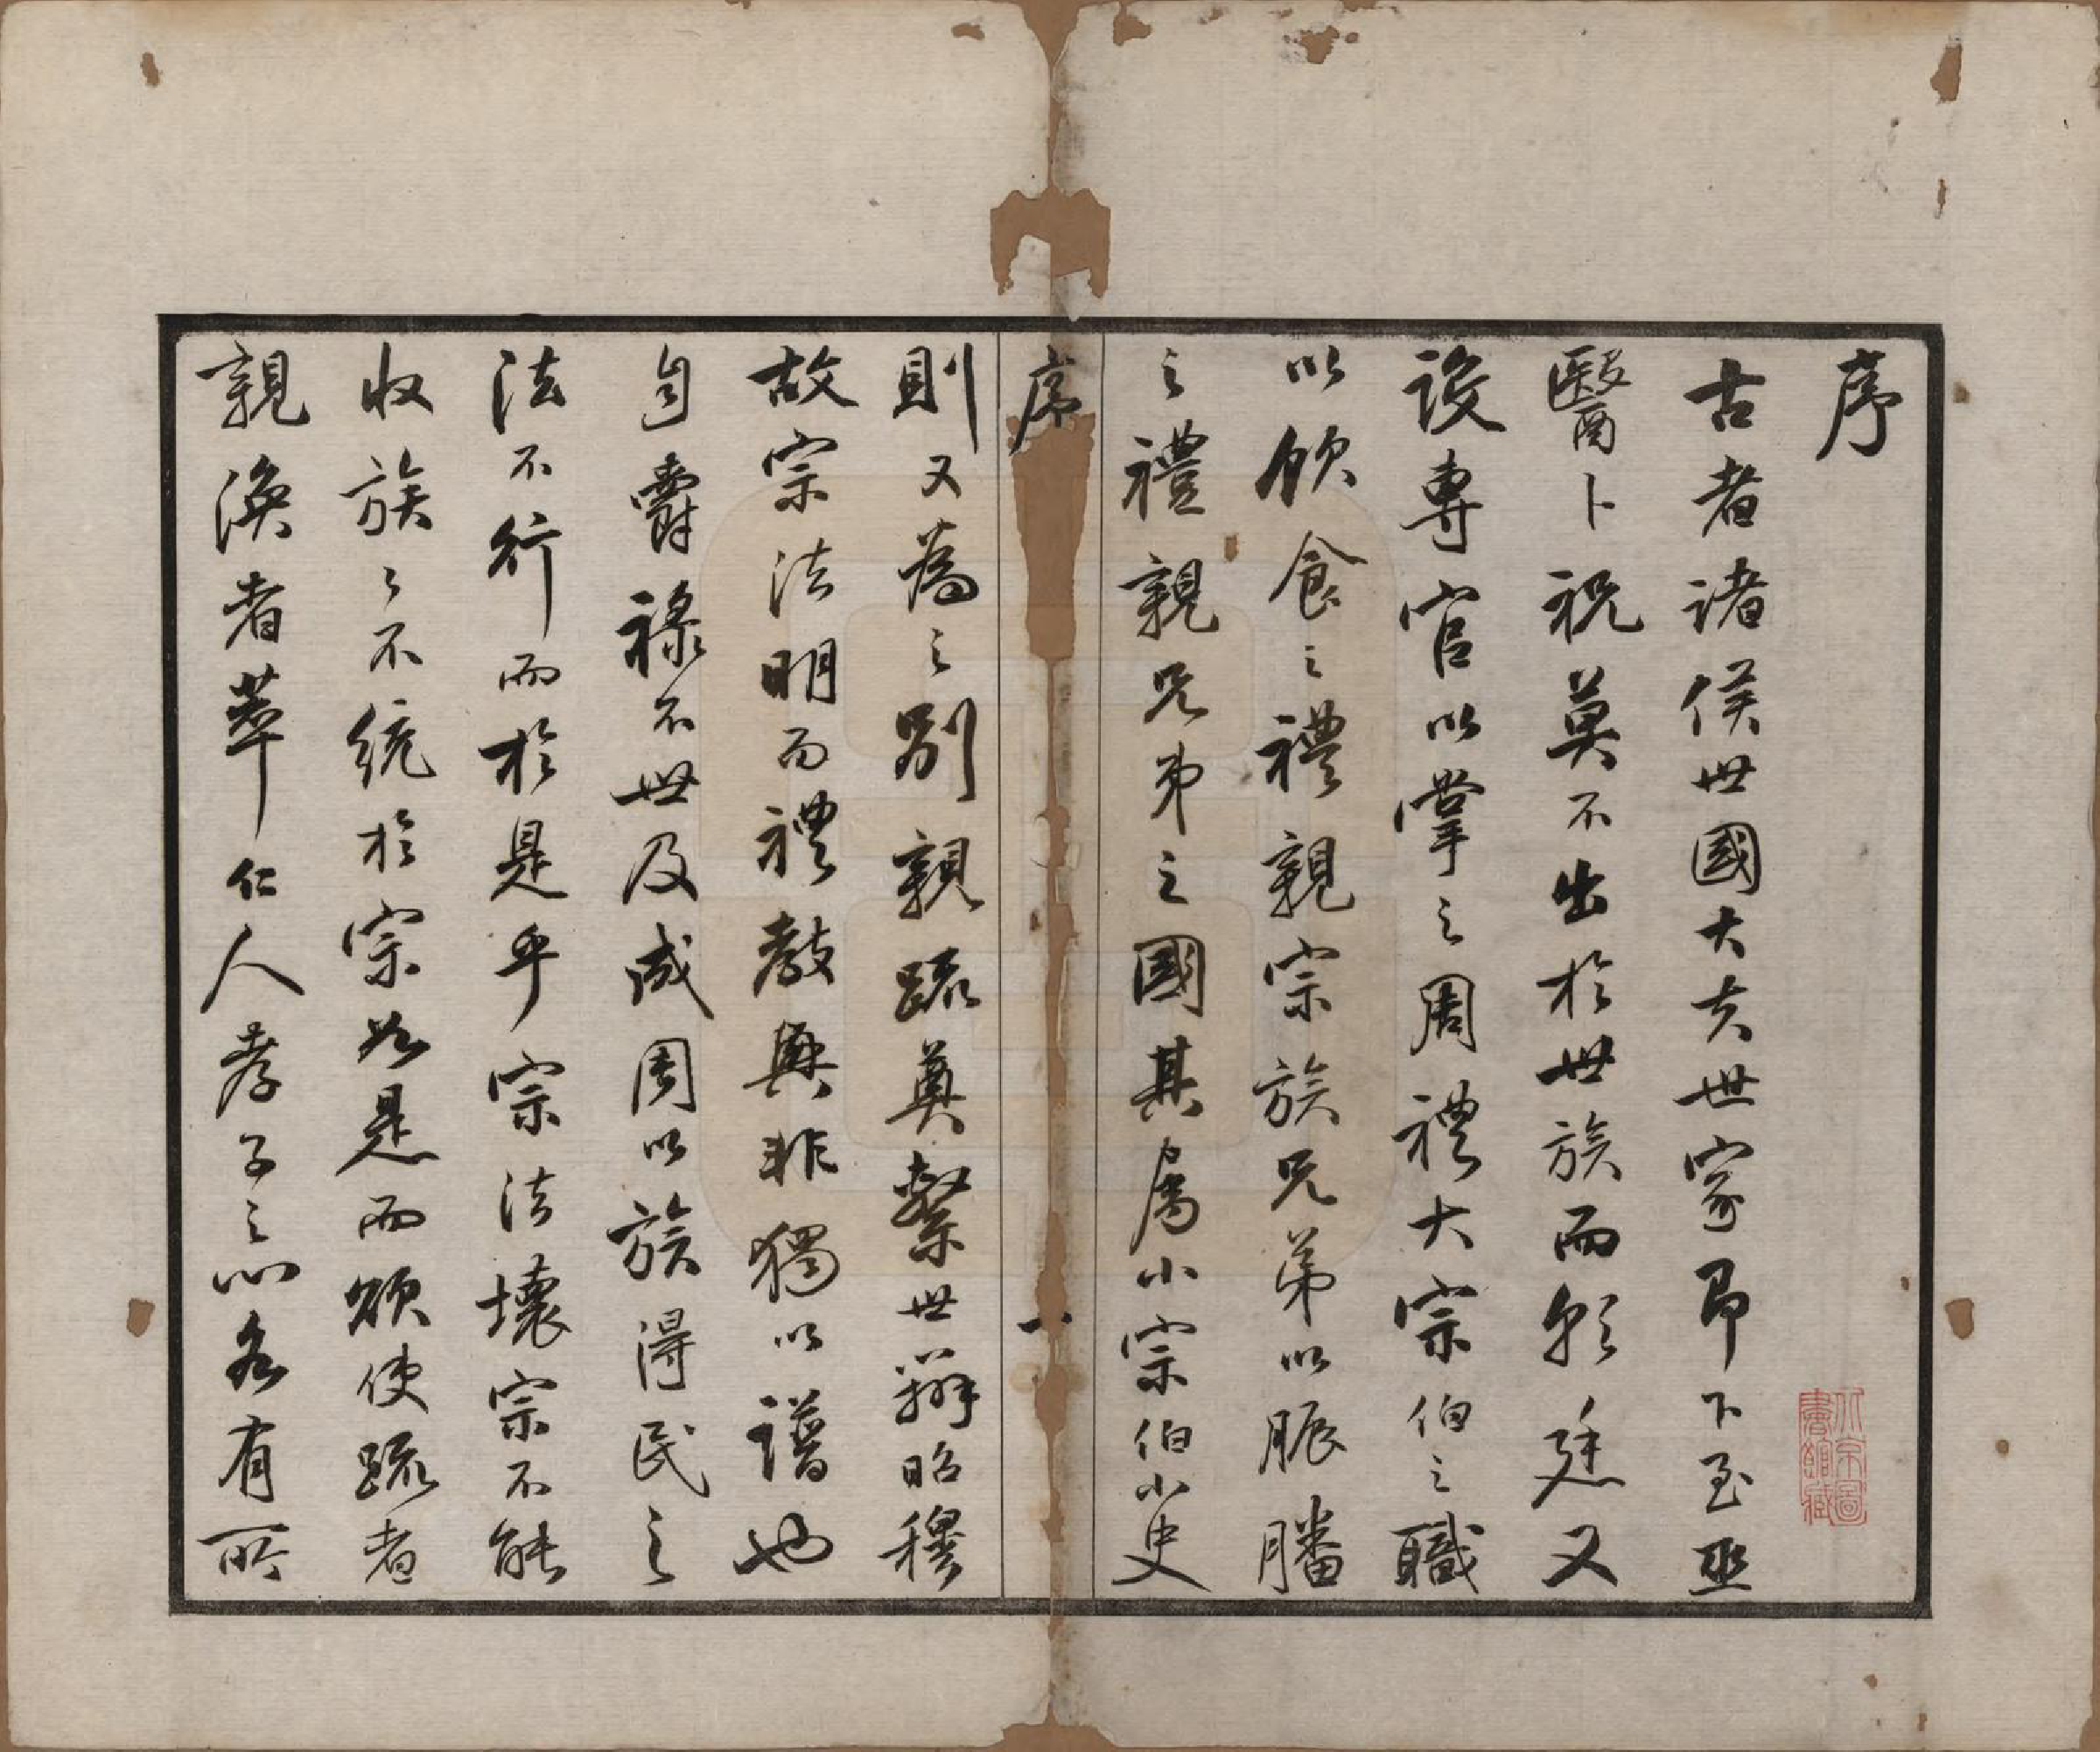 序
古者諸侯世國大夫世家即下至巫
醫卜祝莫不出於世族而朝廷又
設專官以掌之周禮大宗伯之職
以飲食之禮親宗族兄弟以脤膰
之禮親兄弟之國其屬小宗伯小史
序
一
則又為之別親疏奠繫世辨昭穆
故宗法明而禮教興非獨以譜也
自爵祿不世及成周以族得民之
法不行而於是乎宗法壞宗不能
收族々不統於宗於是而欲使疏者
親渙者萃仁人孝子之心容有所
北京圖
書館藏